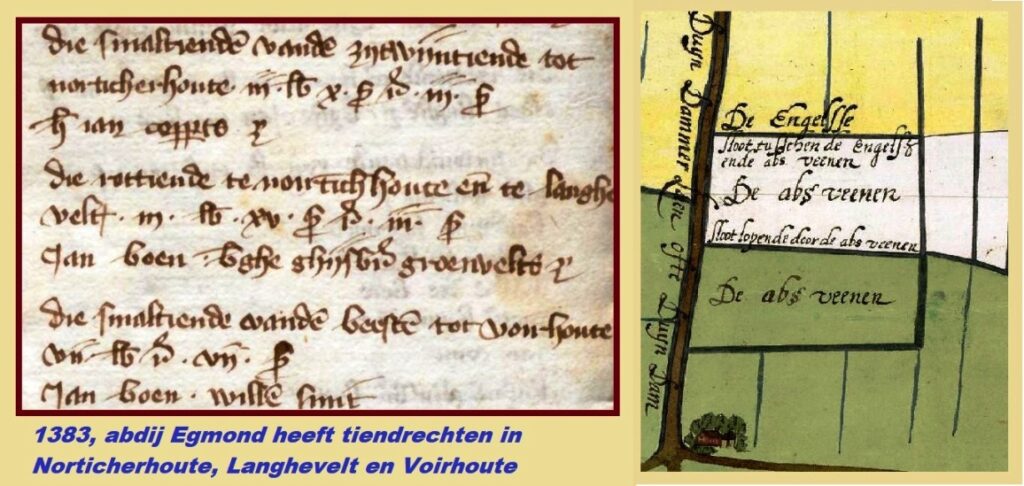 die smaltiendē vandē zytwijntiende tot
norticherhoute · iij · lb x · ꝭ
h̄ ian coppꝭts
die rottiende te nortichhoute eñ te langhe
velt · m · lb · xv ·
Jan boen · ghijsbr̄ groenvelts
die smaltiende vandē beestē tot vorhoute
vij · lb · vij ·
Jan boen · willē smit
1383, abdij Egmond heeft tiendrechten in
Norticherhoute, Langhevelt en Voirhoute
Duyn Dammer ofte Duyn Dam
De Engelsse
sloot tusschen de Engelsche
ende abs veenen
De abs veenen
sloot lopende deor de abs veenen
De abs veenen